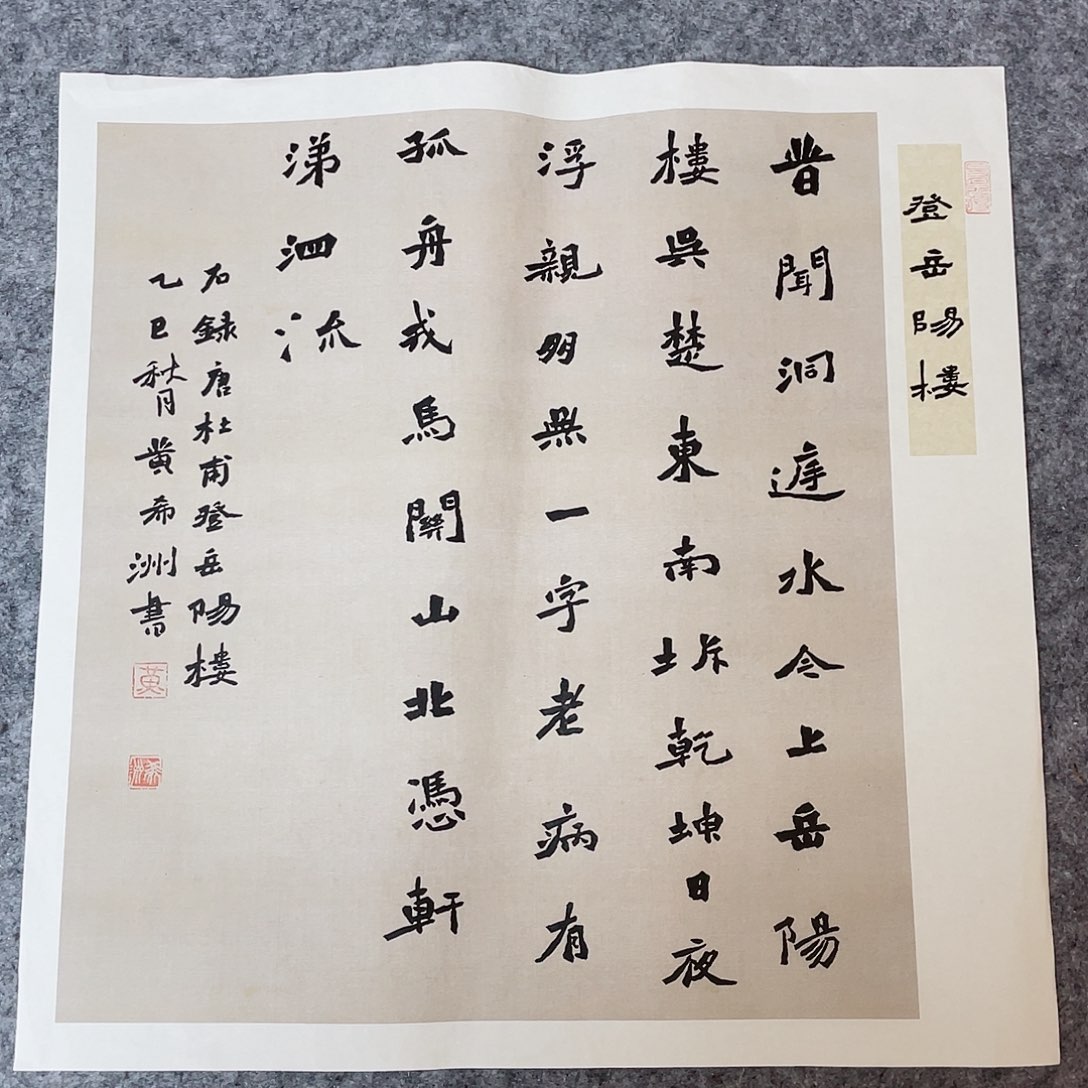 登岳陽樓
昔聞洞庭水今上岳陽
樓吳楚東南坼乾坤日夜
浮親朋無一字老病有
孤舟戎馬關山北憑軒
涕泗流
右録唐杜甫登岳陽樓
乙巳秋月黄希洲書
黄